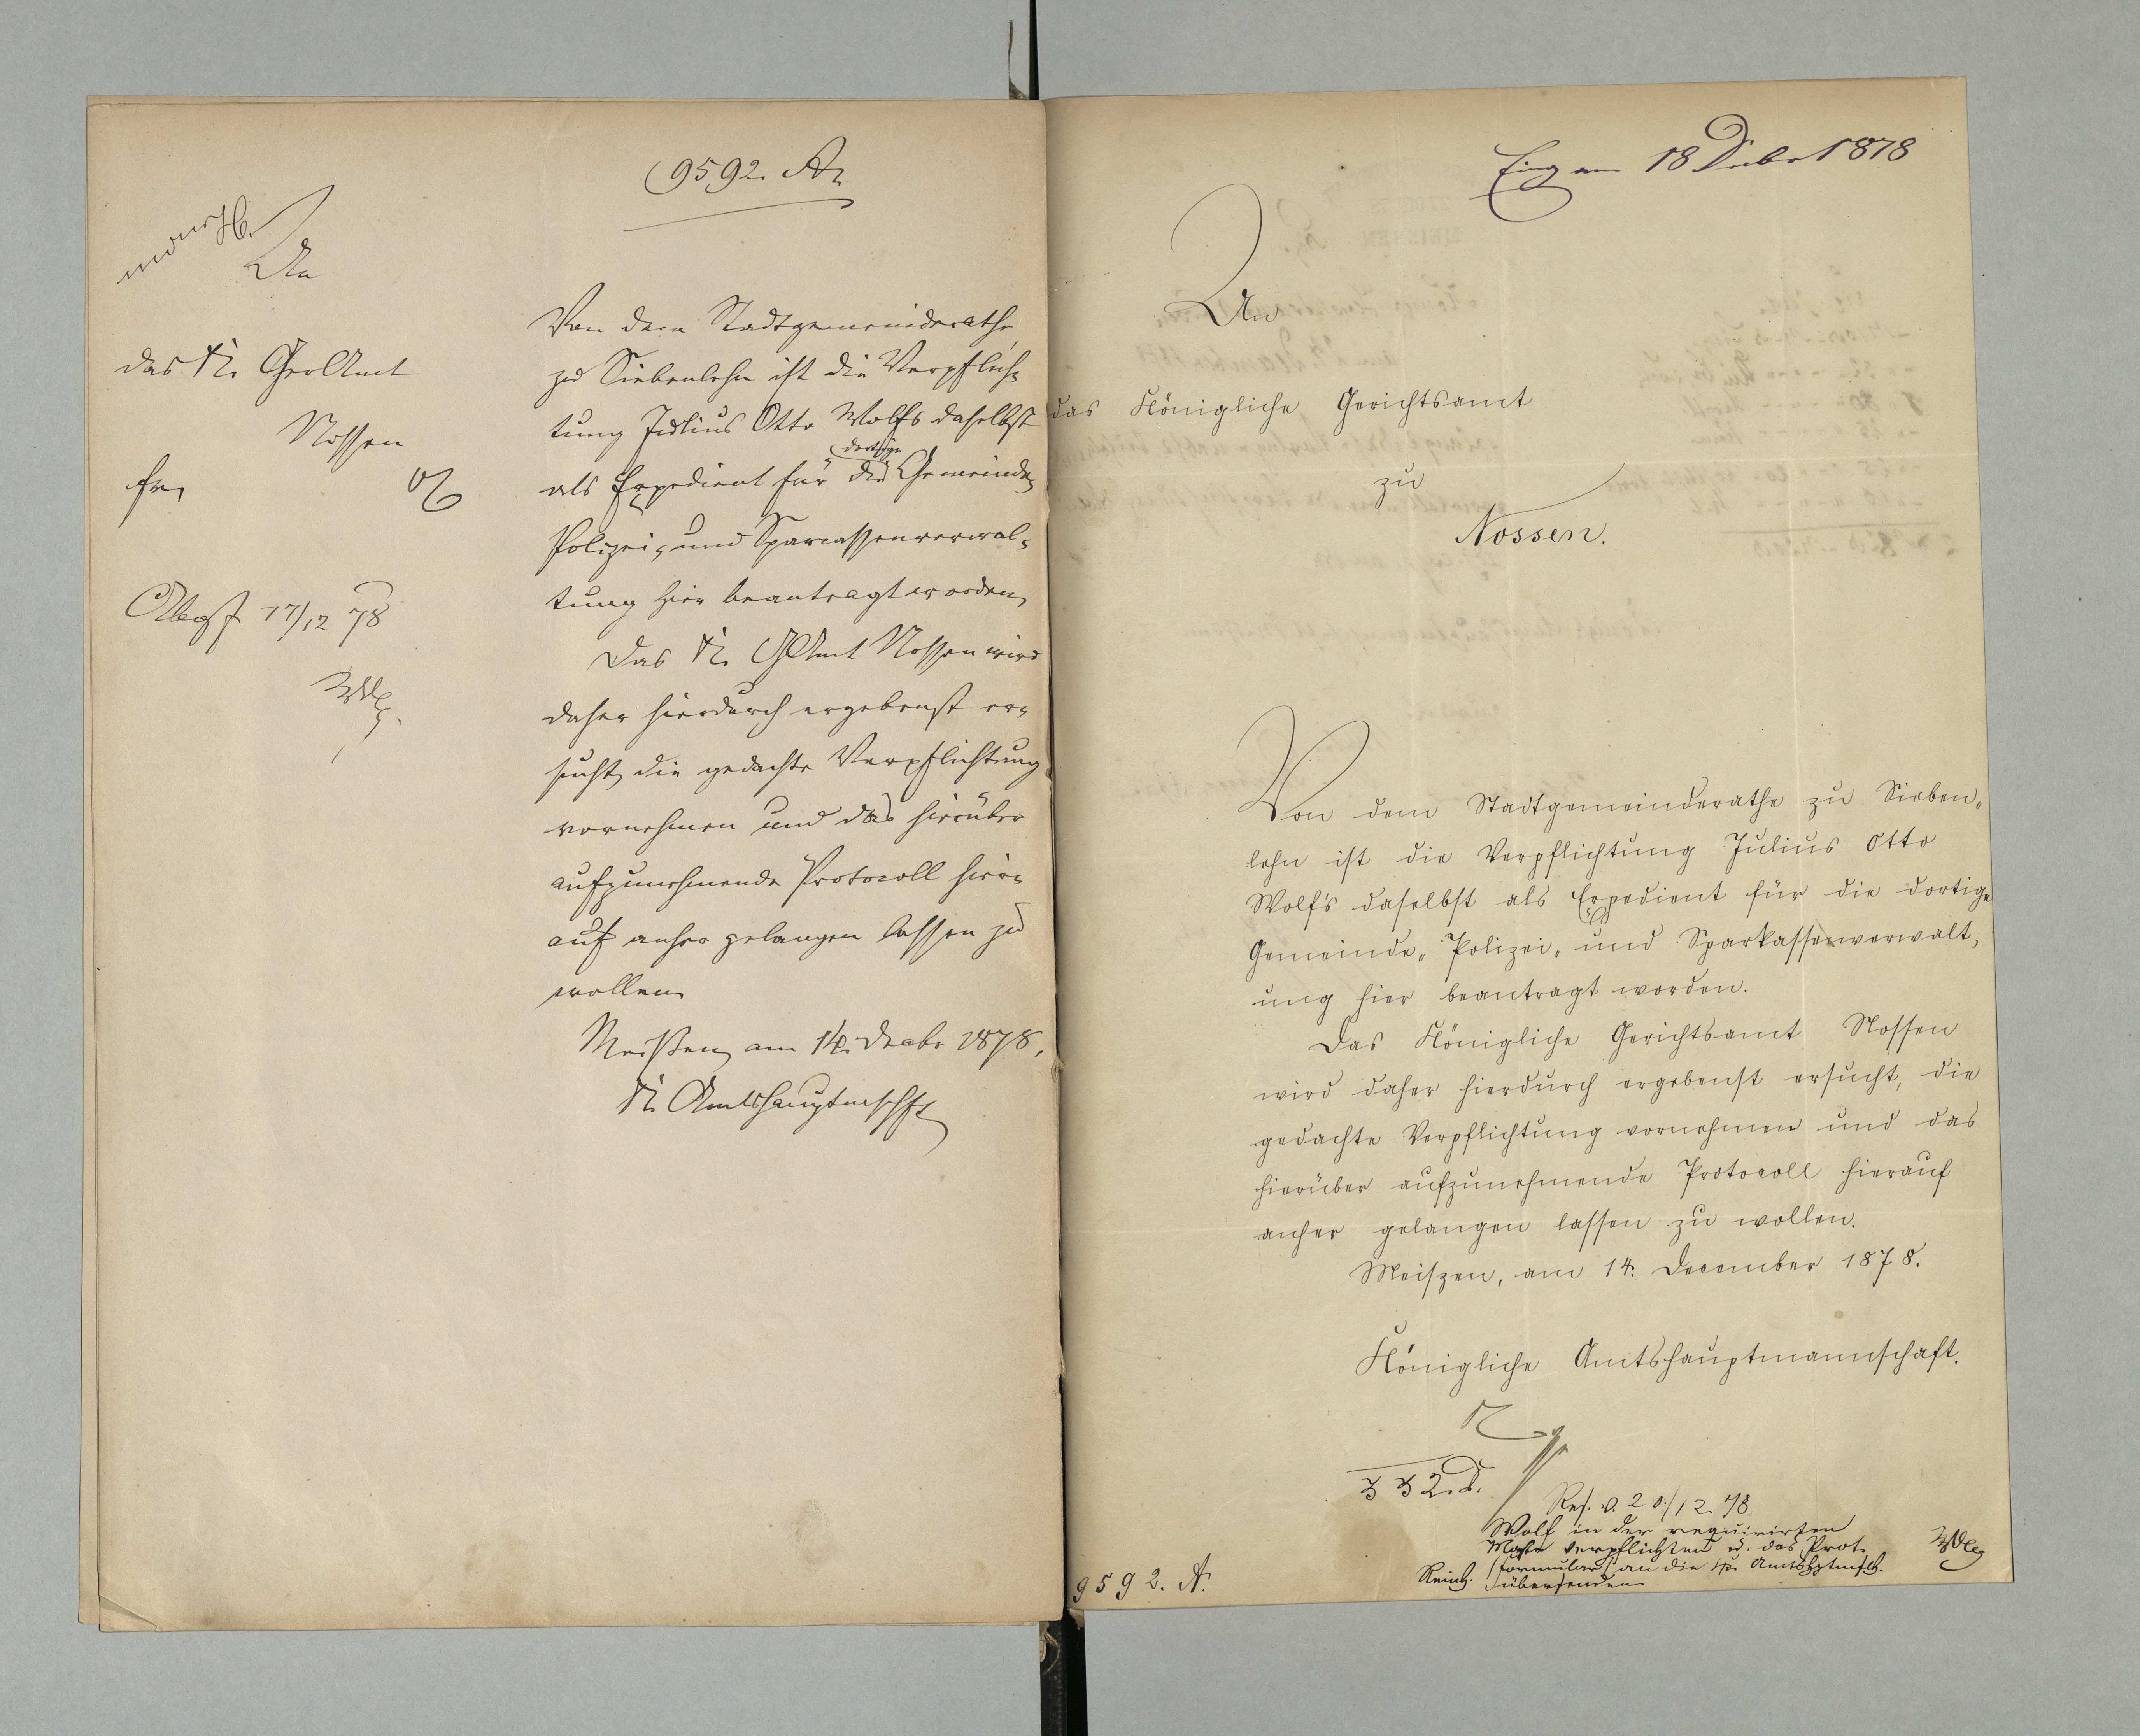 9592. A.
An
das K. GerAmt
Nossen
Abgf 17/12 78
Von dem Stadtgemeinderathe
zu Siebenlehn ist die Verpflich-
tung Julius Otto Wolfs daselbst
dortige
als Expedient für die Gemeinde-
Polizei- und Sparcassenverwal-
tung hier beantragt worden.
Das K. GAmt Nossen wird
daher hierdurch ergebenst er-
sucht, die gedachte Verpflichtung
vornehmen und das hierüber
aufzunehmende Protocoll hier-
auf anher gelangen lassen zu
wollen.
Meißen, am 14. Decbr 1878.
K. Amtshauptmschft
Eing am 18 Decbr 1878
An
das Königliche Gerichtsamt
zu
Nossen.
Von dem Stadtgemeinderathe zu Sieben-
lehn ist die Verpflichtung Julius Otto
Wolf's daselbst als Expedient für die dortige
Gemeinde-, Polizei- und Sparkassenverwalt-
ung hier beantragt worden.
Das Königliche Gerichtsamt Nossen
wird daher hierdurch ergebenst ersucht, die
gedachte Verpflichtung vornehmen und das
hierüber aufzunehmende Protocoll hierauf
anher gelangen lassen zu wollen.
Meiszen, am 14. December 1878.
Königliche Amtshauptmannschaft.
Res. v. 20/12. 78.
Wolf in der requirirten
Maße verpflichten u. das Prot.
(Formular) an die K. Amtshptmsch.
übersenden.
9592. A.